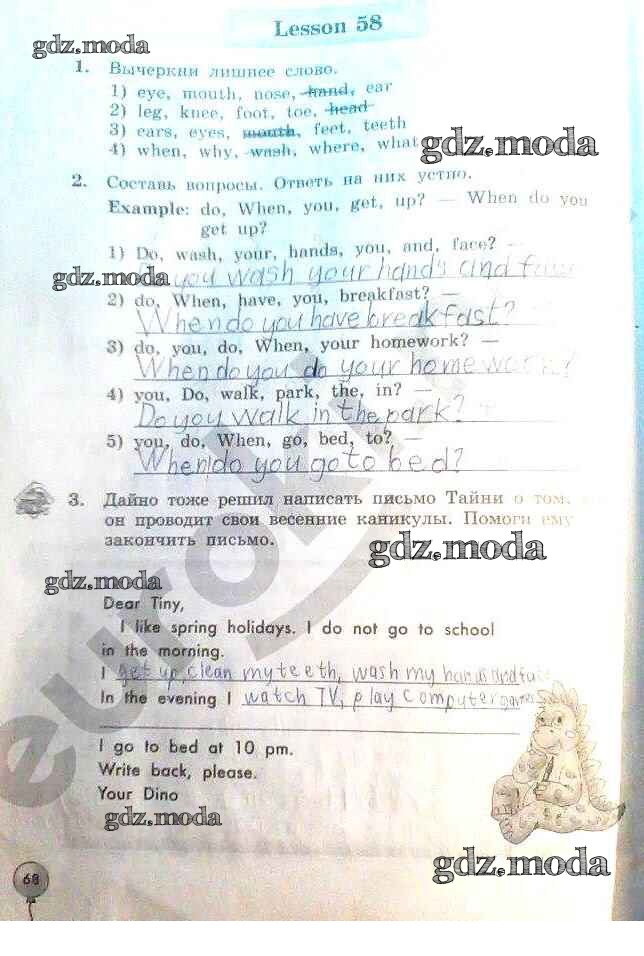 Lesson 58
gdz.moda
1. Вычеркни лишнее слово.
1) eye, mouth, nose, hand, ear
2) leg, knee, foot, toe, head
3) ears, eyes, mouth, feet, teeth
4) when, why, wash, where, what
gdz.moda
2. Составь вопросы. Ответь на них устно.
Example: do, When, you, get, up? — When do you
get up?
1) Do, wash, your, hands, you, and, face? —
Do you wash your hands and face
gdz.moda
2) do, When, have, you, breakfast? —
When do you have breakfast?
3) do, you, do, When, your homework? —
When do you do your homework?
4) you, Do, walk, park, the, in? —
Do you walk in the park?
5) you, do, When, go, bed, to? —
When do you go to bed?
3. Дайно тоже решил написать письмо Тайни о том,
он проводит свои весенние каникулы. Помоги ему
закончить письмо.
gdz.moda
gdz.moda
euroki
Dear Tiny,
I like spring holidays. I do not go to school
in the morning.
I get up, clean my teeth, wash my hands and face
In the evening I watch TV, play computer games
I go to bed at 10 pm.
Write back, please.
Your Dino
gdz.moda
gdz.moda
68